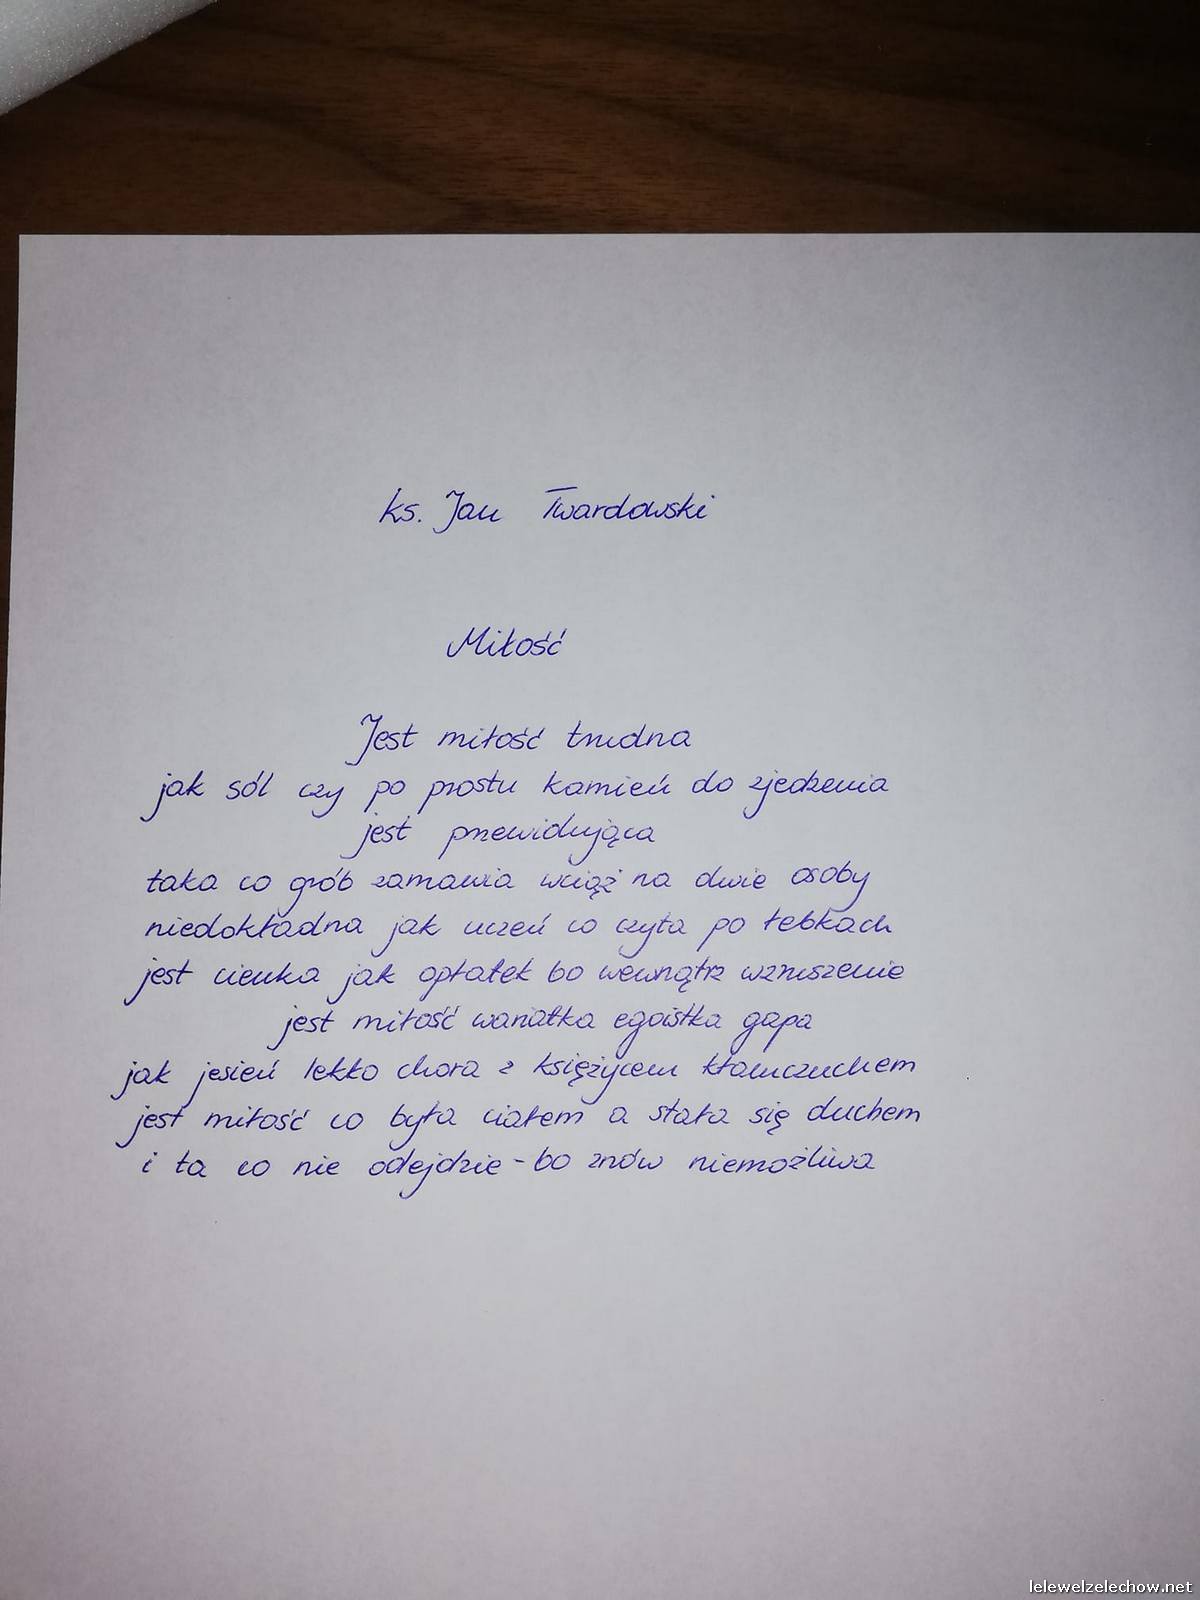 ks. Jan Twardowski
Miłość
Jest miłość trudna
jak sól czy po prostu kamień do zjedzenia
jest przewidująca
taka co grób zamawia wciąż na dwie osoby
niedokładna jak uczeń co czyta po łebkach
jest cienka jak opłatek bo wewnątrz wzruszenie
jest miłość wariatka egoistka gapa
jak jesień lekko chora z księżycem kłamczuchem
jest miłość co była ciałem a stała się duchem
i ta co nie odejdzie - bo znów niemożliwa
lelewelzelechow.net